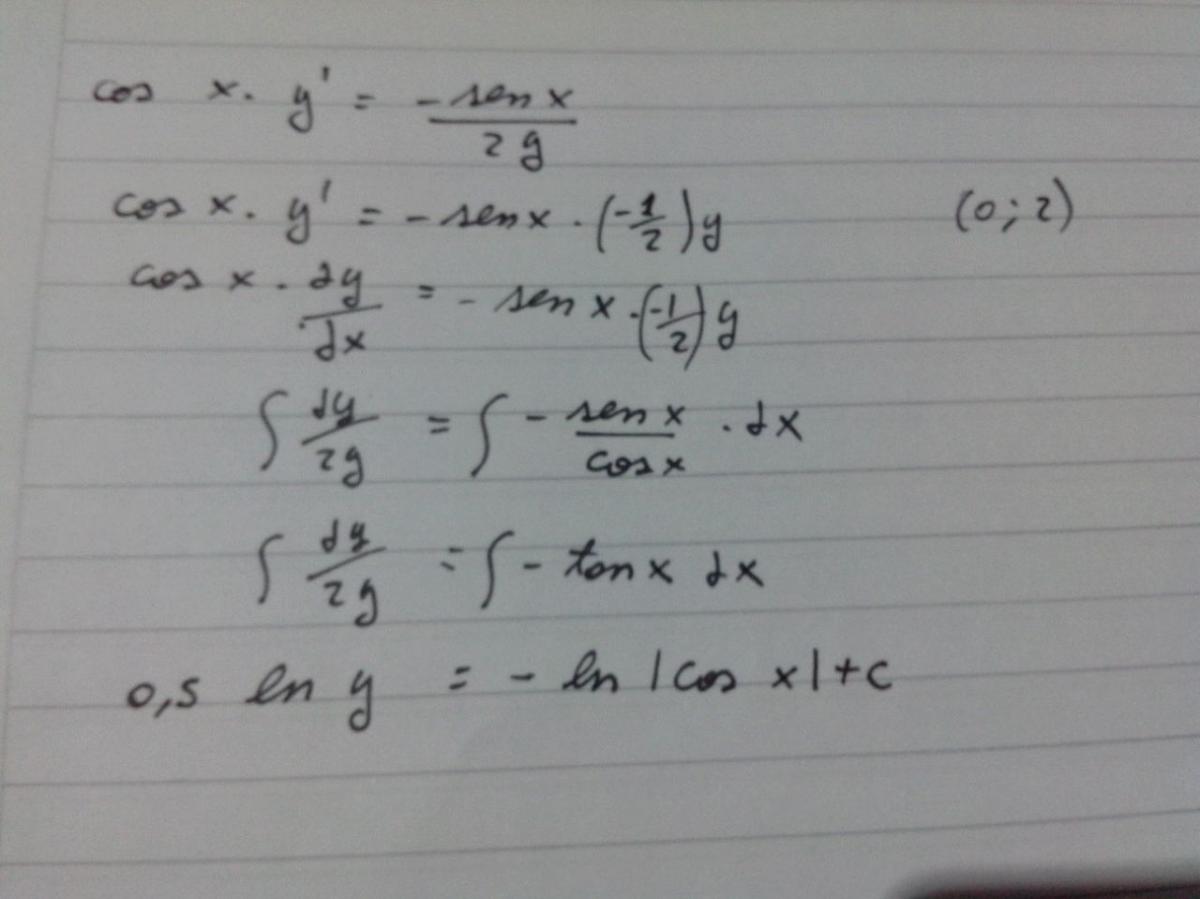 cos x. y' = -sen x / 2y
cos x. y' = -sen x . (-1/2) y (0;2)
cos x . dy/dx = - sen x .(-1/2) y
∫ dy/2y = ∫ - sen x/cos x . dx
∫ dy/2y = ∫ - tan x dx
0,5 ln y = - ln |cos x|+c